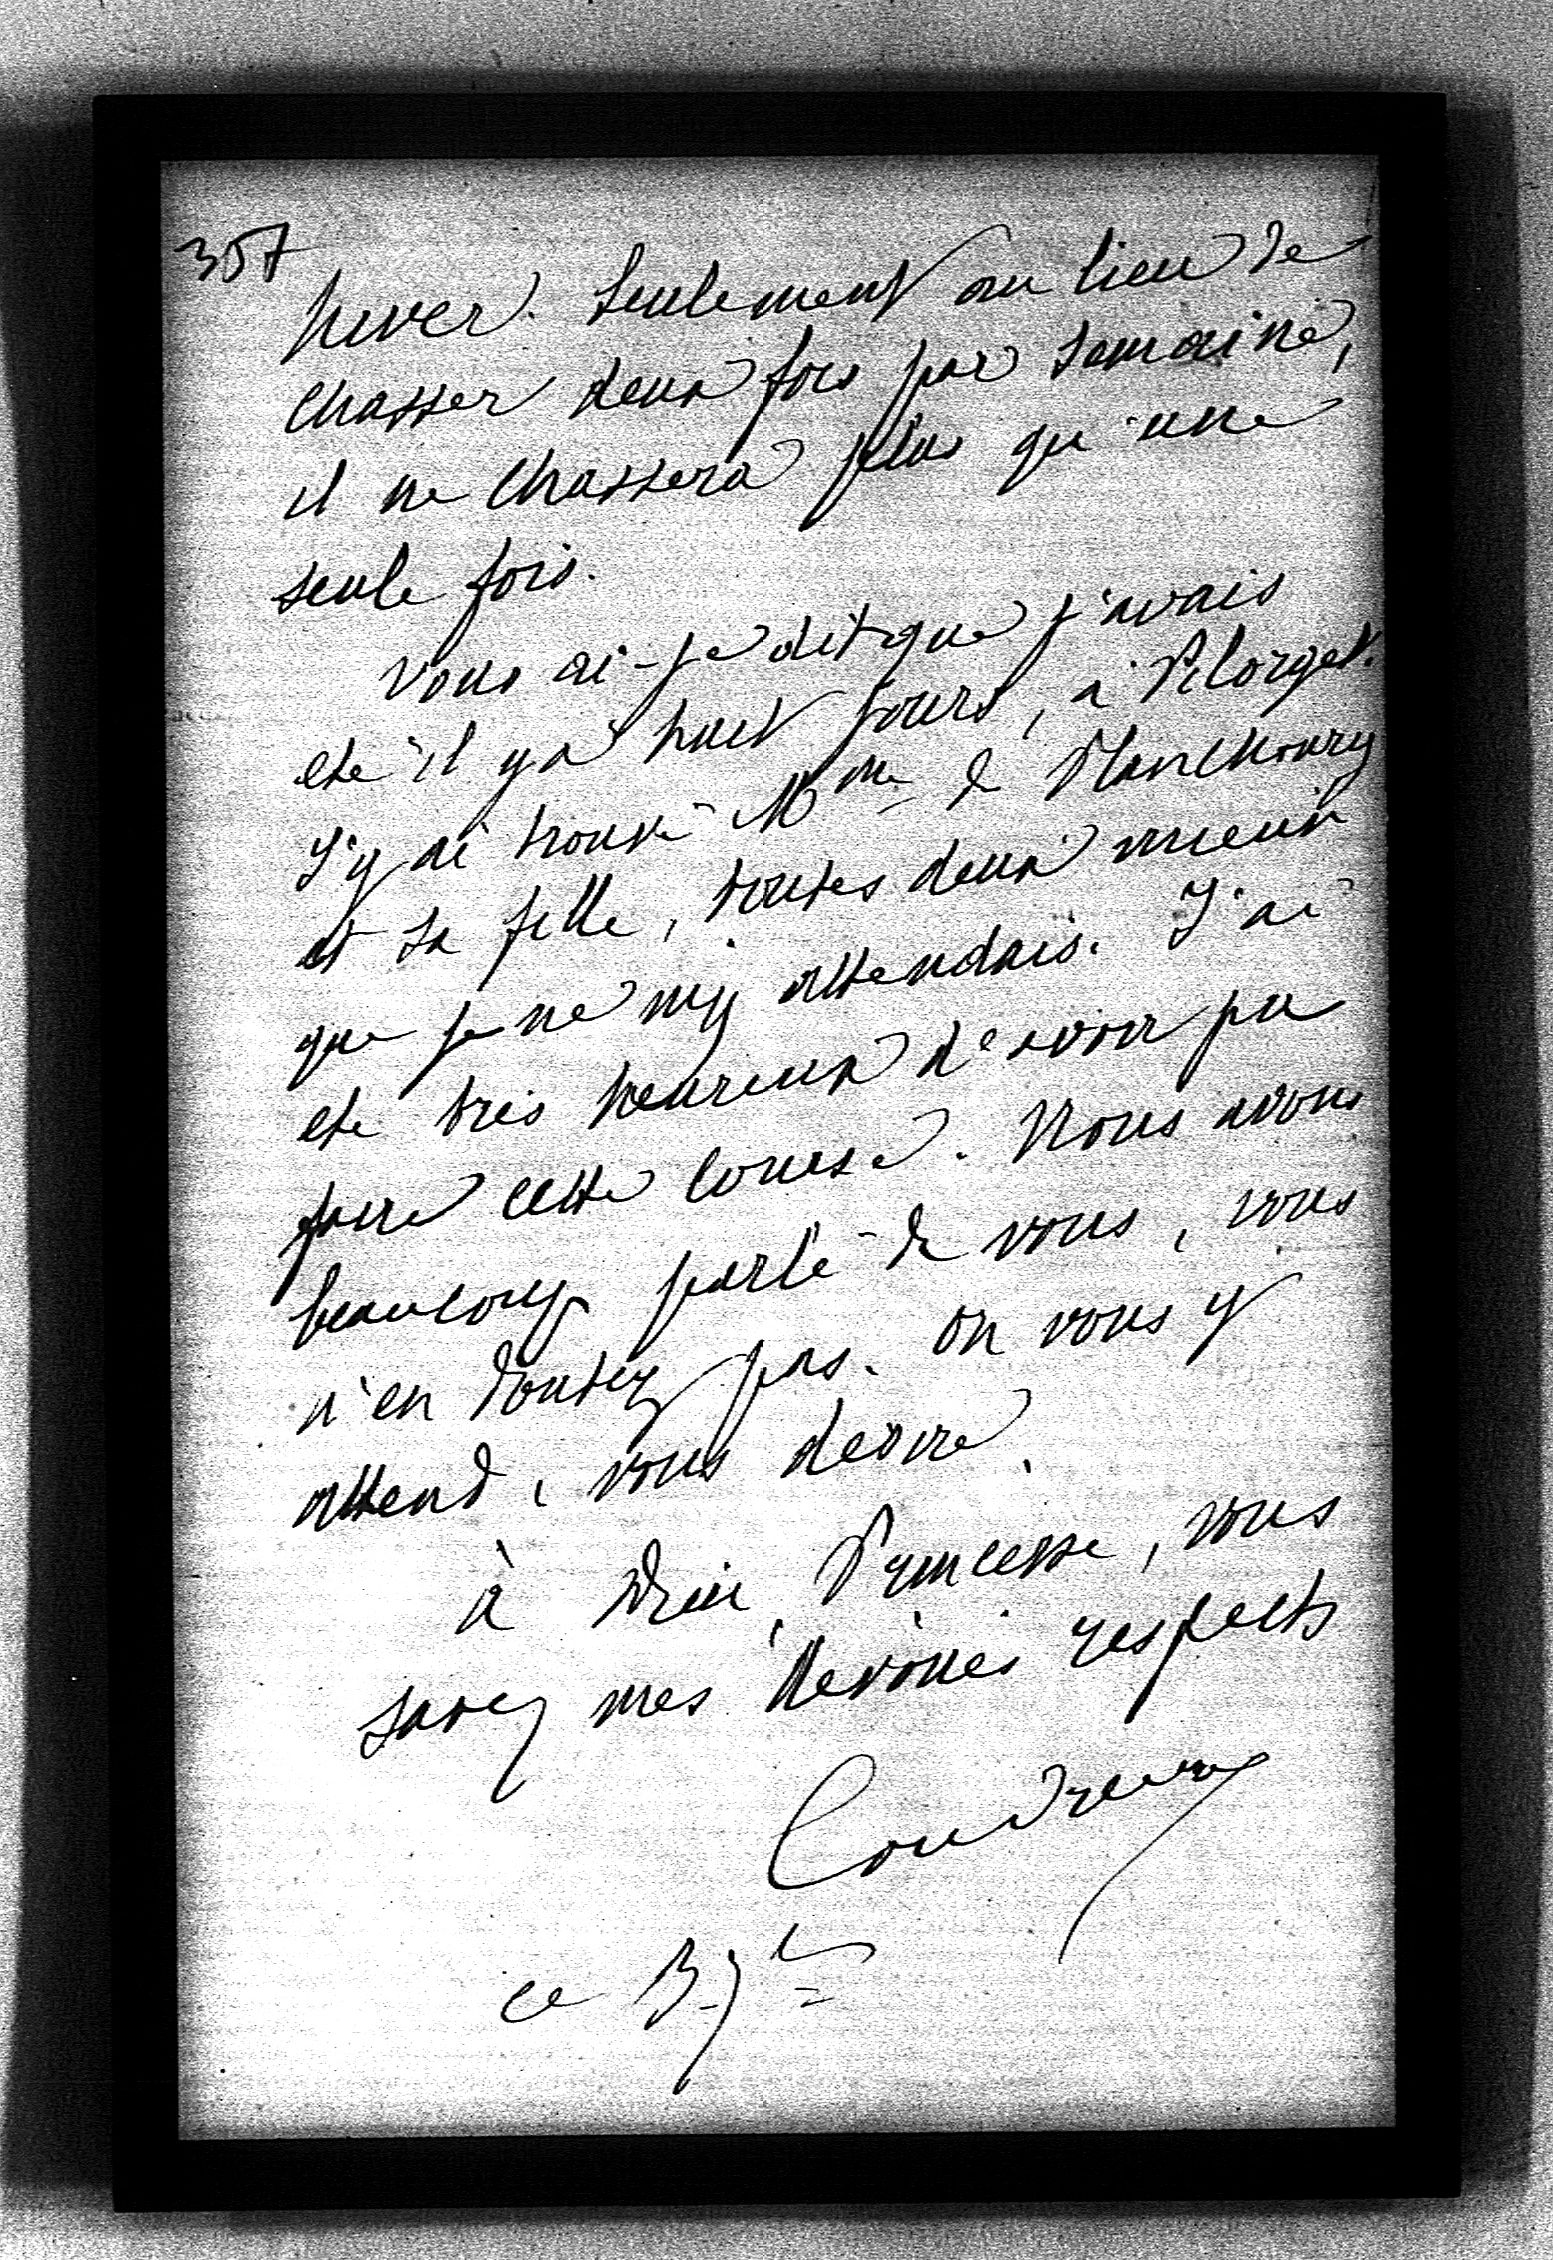 357
hiver. Seulement au lieu de
chasser deux fois par semaine,
il ne chassera plus qu'une
seule fois.
Vous ai-je dit que j'avais
été il y a huit jours, à Pilorget.
J'y ai trouvé Mme de Planchoury
et sa fille, toutes deux mieux
que je ne m'y attendais. J'ai
été très heureux d'avoir pu
faire cette course. Nous avons
beaucoup parlé de vous, vous
n'en doutez pas. On vous y
attend, vous désire.
à Princesse, vous
savez mes dévoués respects
Coudreux
ce